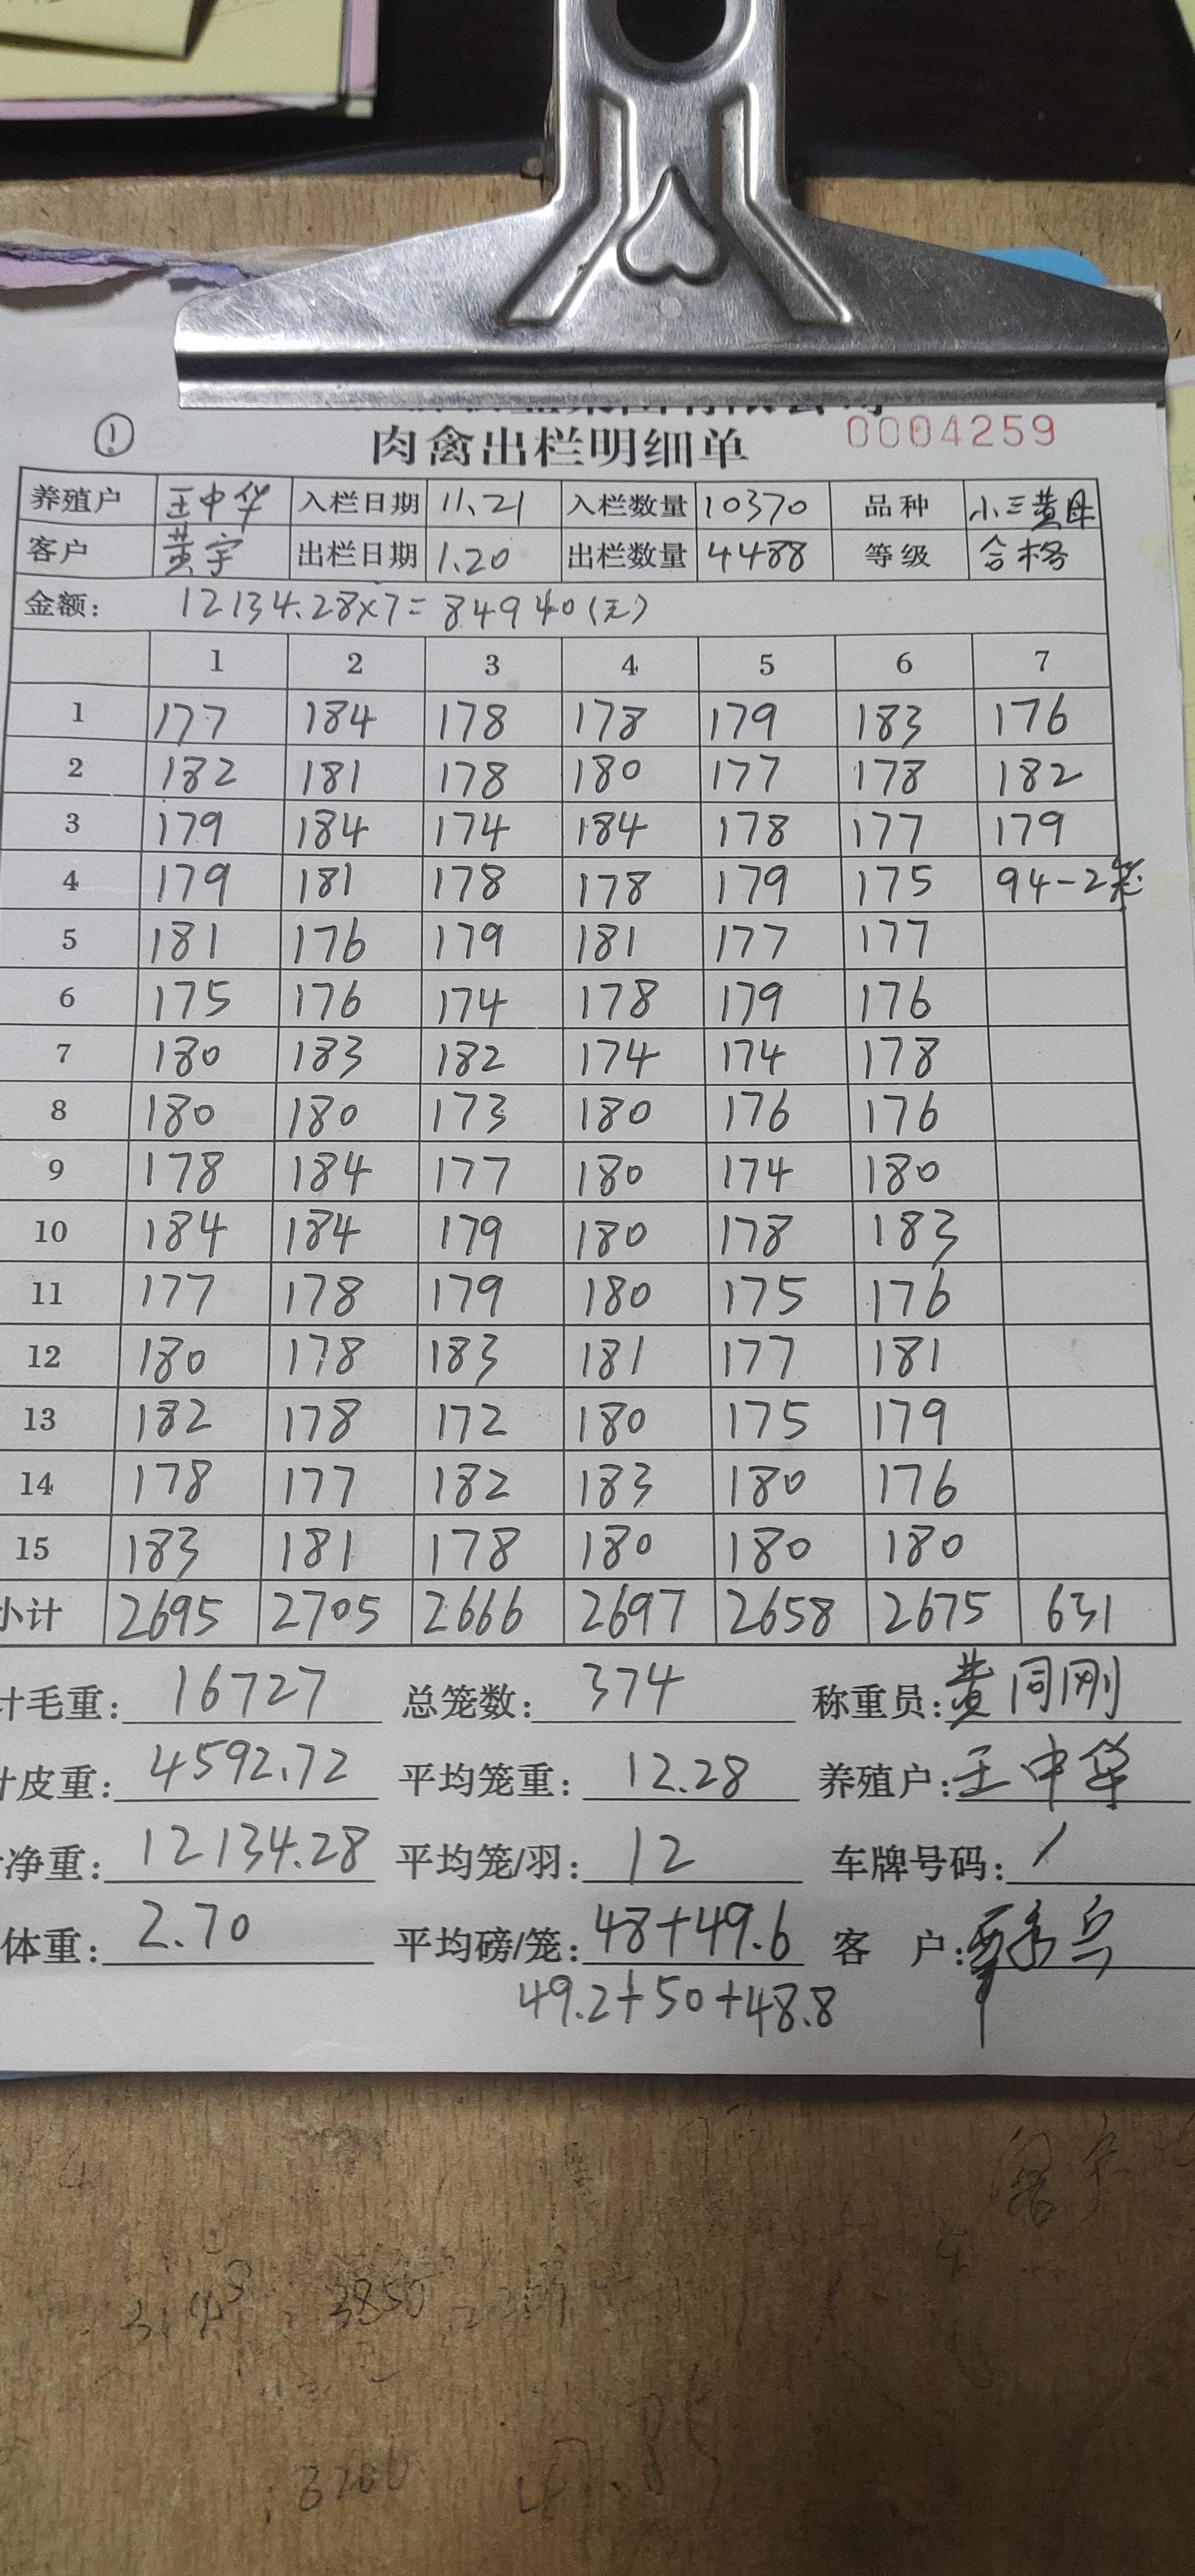 ①
肉禽出栏明细单 0004259
养殖户 王中华 入栏日期 11.21 入栏数量 10370 品种 小三黄母
客户 黄宇 出栏日期 1.20 出栏数量 4488 等级 合格
金额: 12134.28×7=84940(元)
1 2 3 4 5 6 7
1 177 184 178 178 179 183 176
2 182 181 178 180 177 178 182
3 179 184 174 184 178 177 179
4 179 181 178 178 179 175 94-2笼
5 181 176 179 181 177 177
6 175 176 174 178 179 176
7 180 183 182 174 174 178
8 180 180 173 180 176 176
9 178 184 177 180 174 180
10 184 184 179 180 178 183
11 177 178 179 180 175 176
12 180 178 183 181 177 181
13 182 178 172 180 175 179
14 178 177 182 183 180 176
15 183 181 178 180 180 180
小计 2695 2705 2666 2697 2658 2675 631
计毛重: 16727 总笼数: 374 称重员: 黄同刚
计皮重: 4592.72 平均笼重: 12.28 养殖户: 王中华
净重: 12134.28 平均笼/羽: 12 车牌号码: /
体重: 2.70 平均磅/笼: 48+49.6 客 户:
49.2+50+48.8
3850